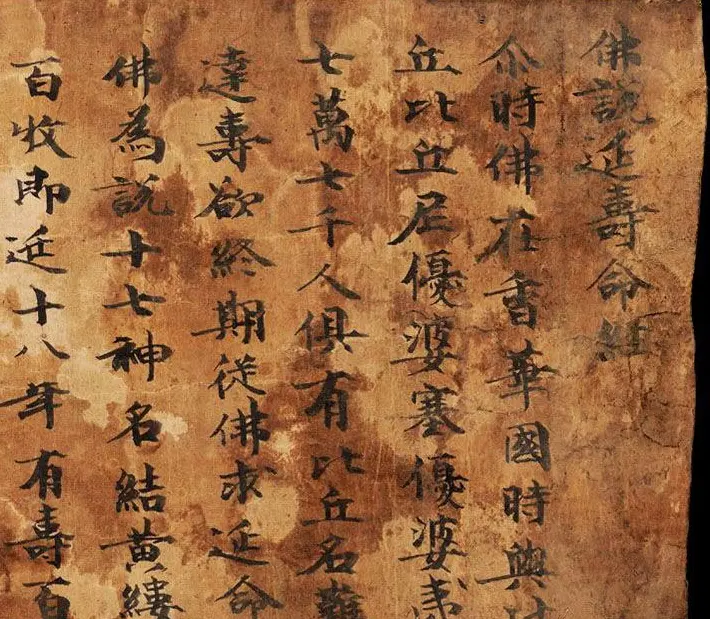 佛說延壽命經
尒時佛在香華國時與比
丘比丘尼優婆塞優婆夷
七萬七千人俱有比丘名難
達壽欲終期從佛求延命
佛為說十七神名結黃縷
百收即延十八年有壽百